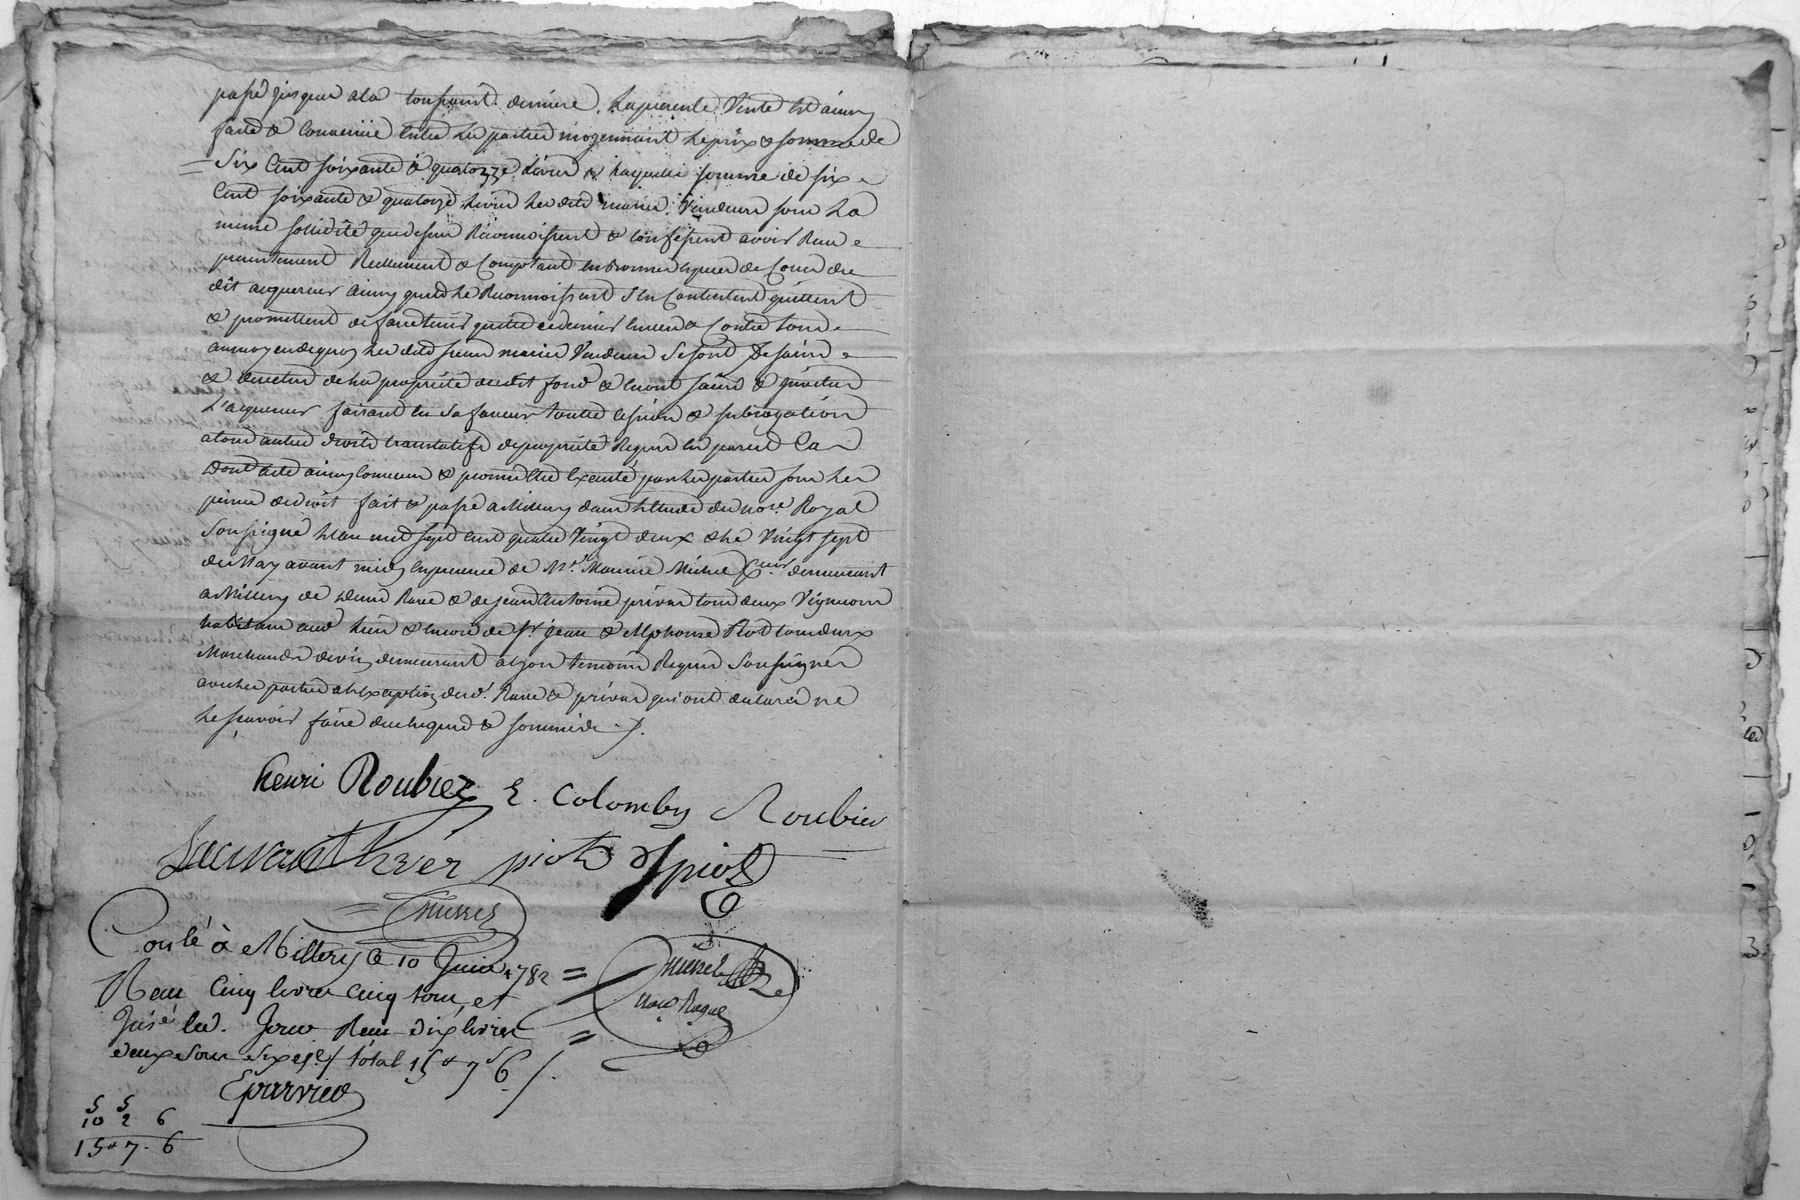 passé jusques a la toussaint derniere. La presente Vente est ainsy
faite & convenüe entre les parties moyennant le prix & somme de
Six Cent soixante & quatorze Livres & Laquelle somme de six
Cent soixante & quatorze Livres les dits mariés Vendeurs sous La
même sollidité que dessus Reconnoissent & confessent avoir Reçu
presentement Reellement & Comptant en bonnes especes de Cours du
dit acquereur ainsy qu'ils le Reconnoissent s'en Contentent quittent
& promettent de faire tenir quitte ce dernier envers & Contre tous
au moyen de quoy les dits sieurs mariés Vendeurs Se sont Desaisis
& devetus de la propriété du dit fond & en ont saisi & invetu
L'acquereur faisant en Sa faveur toutes cessions & subrogations
a tous autres droits translatifs de propriété Requis en pareil Cas
Dont acte ainsy convenu & promis etre Executé par les parties sous les
peines de droit fait & passé a Millery dans l'Etude du nore. Royal
Soussigné L'an mil sept cent quatre Vingt deux & le Vingt sept
de May avant midy en presence de Mr. Maurice Michel demeurant
a Millery de Rave & de jean antoine privas tous deux Vignerons
habitans aud. Lieu & encore de Sr. jean & Alphonse Piot tous deux
Marchands de vin demeurant a Lyon temoins Requis Soussignés
avec les parties a l'exception desd. Rave & privas qui ont declarés ne
le sçavoir faire de ce Requis & sommés ./.
henri Roubiez E. Colomby Roubier
piot piot
Conlé à Millery le 10 Juin 1782 =
Reçu Cinq livres cinq sous, et
Jnsé led. Jour Reçu dix livres =
deux Sous Six ds/ total 15# 7s 6/.
Eparvier
5 5
10 2 6
15# 7. 6